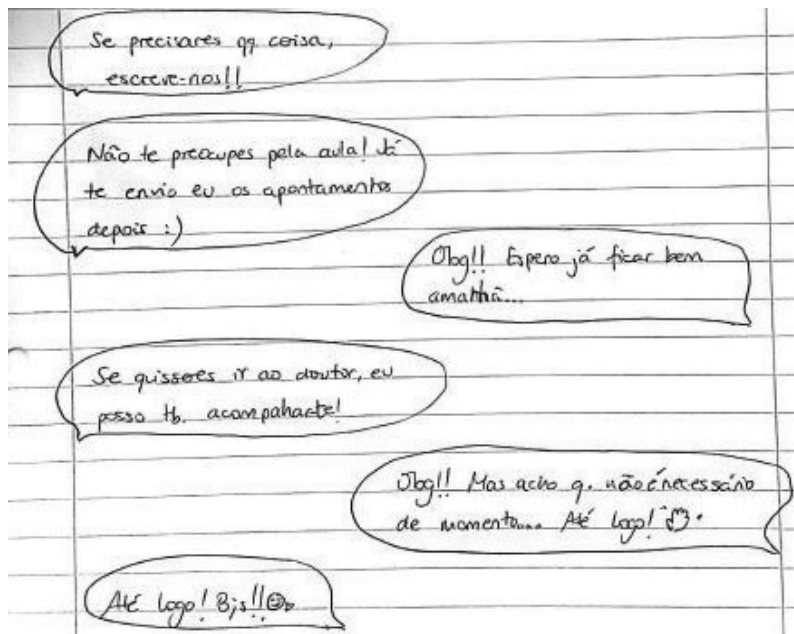 Se precisares qq. coisa,
escreve-nos!!
Não te preocupes pela aula! Já
te envio eu os apontamentos
depois :)
Obg!! Espero já ficar bem
amanhã...
Se quisseres ir ao doutor, eu
posso tb. acompahacte!
Obg!! Mas acho q. não é necessário
de momento... Até logo!
Até logo! Bjs!!